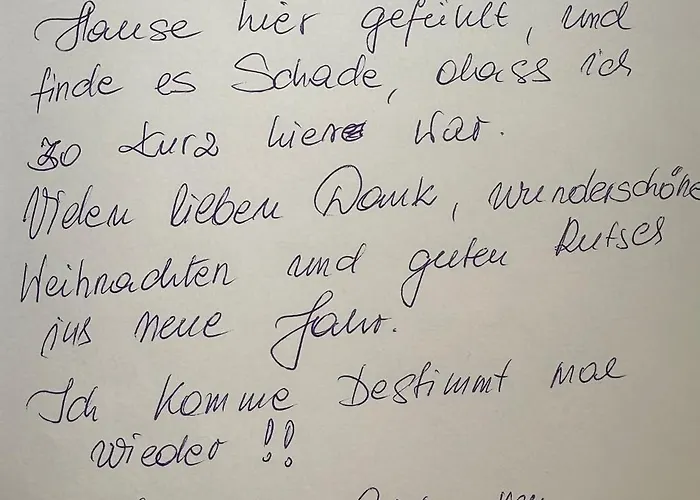 Hause hier gefühlt, und
finde es Schade, dass ich
so kurz hier war.
Vielen lieben Dank, wunderschöne
Weihnachten und guten Rutsch
ins neue Jahr.
Ich komme bestimmt mal
wieder !!